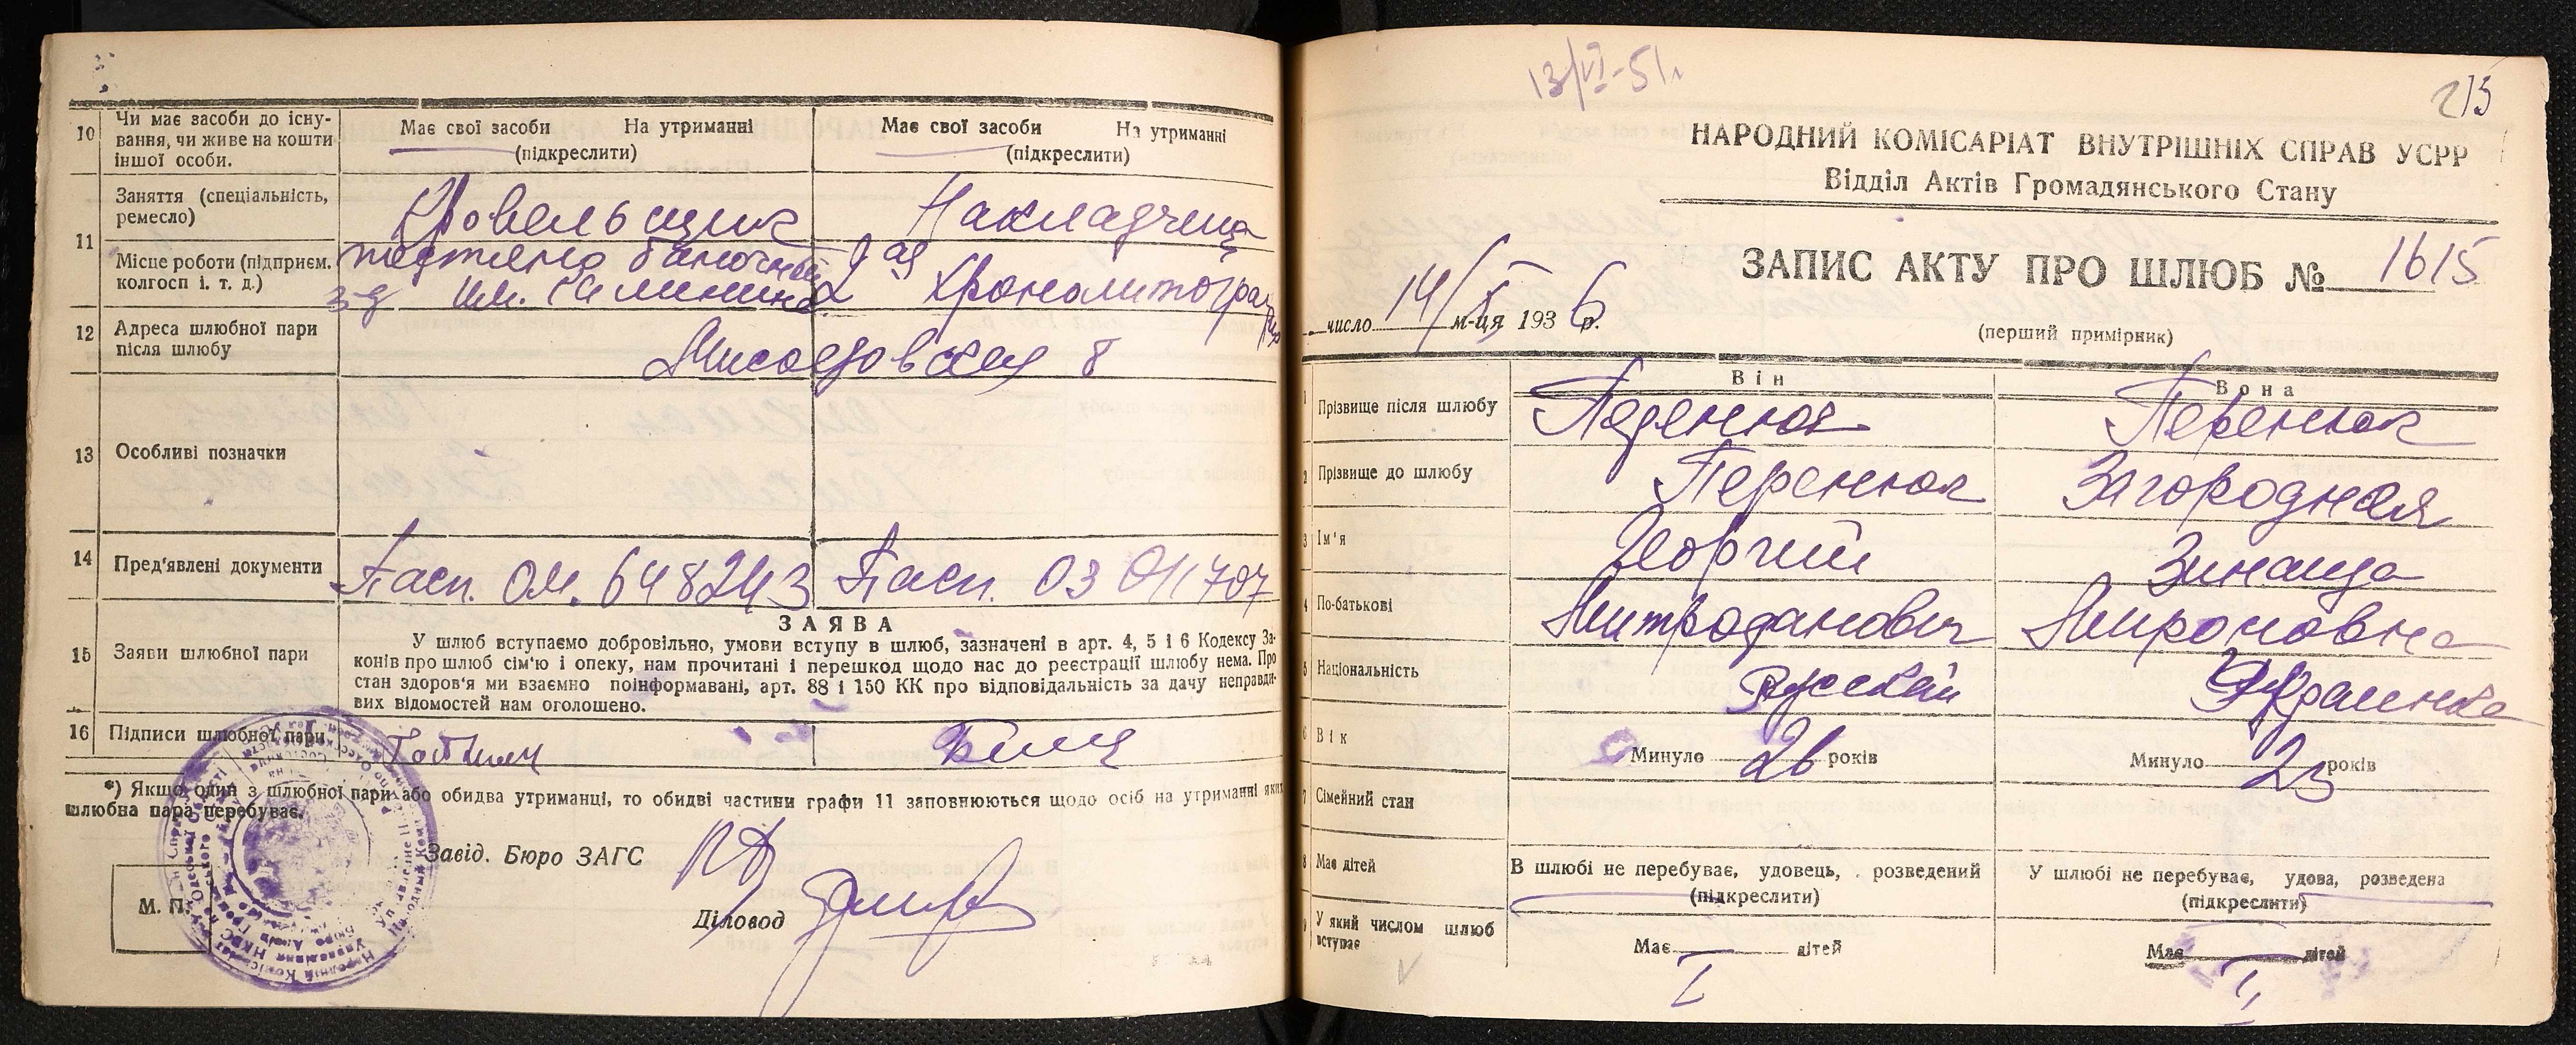 10 Чи має засоби до існування, чи живе на кошти іншої особи.
Має свої засоби На утриманні
(підкреслити)
Має свої засоби На утриманні
(підкреслити)
11 Заняття (спеціальність, ремесло)
Кровельщик
Накладчица
Місце роботи (підприєм. колгосп і. т. д.)
баночный
з-д им. Калинина
2 ая
Хромолитография
12 Адреса шлюбної пари після шлюбу
Мясоедовская 8
13 Особливі позначки
14 Пред'явлені документи
Пасп. ОМ. 648243
Пасп. ОЗ 011707
15 Заяви шлюбної пари
ЗАЯВА
У шлюб вступаємо добровільно, умови вступу в шлюб, зазначені в арт. 4, 5 і 6 Кодексу За-
конів про шлюб сім'ю і опеку, нам прочитані і перешкод щодо нас до реєстрації шлюбу нема. Про
стан здоров'я ми взаємно поінформавані, арт. 88 і 150 КК про відповідальність за дачу неправди-
вих відомостей нам оголошено.
16 Підписи шлюбної пари
*) Якщо один з шлюбної пари або обидва утриманці, то обидві частини графи 11 заповнюються щодо осіб на утриманні яких
шлюбна пара перебуває.
Завід. Бюро ЗАГС
М. П.
Діловод
13/VI-51г
215
НАРОДНИЙ КОМІСАРІАТ ВНУТРІШНІХ СПРАВ УСРР
Відділ Актів Громадянського Стану
ЗАПИС АКТУ ПРО ШЛЮБ № 1615
число 14/X м-ця 1936 р.
(перший примірник)
Він
Вона
1 Прізвище після шлюбу
Педенюк
Перенюк
2 Прізвище до шлюбу
Перенюк
Загородная
3 Ім'я
Георгий
Зинаида
4 По-батькові
Митрофанович
Мироновна
5 Національність
Русский
Украинка
6 Вік
Минуло 26 років
Минуло 23 років
7 Сімейний стан
8 Має дітей
В шлюбі не перебуває, удовець, розведений
(підкреслити)
У шлюбі не перебуває, удова, розведена
(підкреслити)
9 У який числом шлюб вступає
Має дітей
I
Має дітей
I